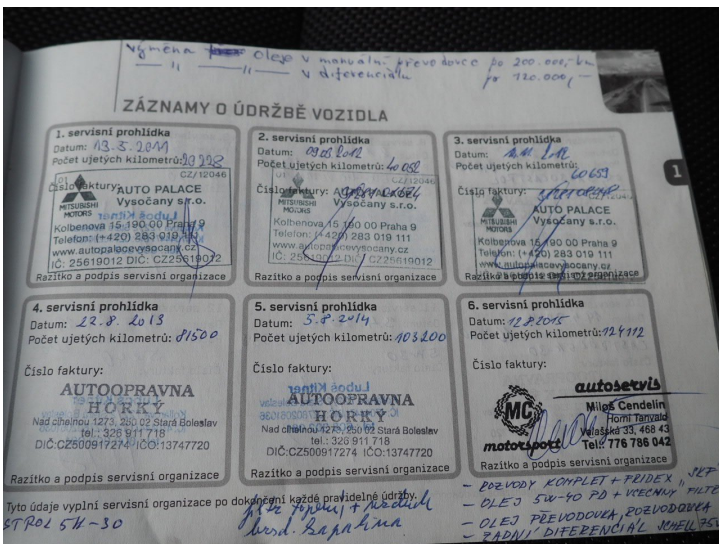 výměna oleje v manuální převodovce po 200.000,- km
— „ — „ — v diferenciálu po 120.000,-
ZÁZNAMY O ÚDRŽBĚ VOZIDLA
1
1. servisní prohlídka
Datum: 19.5.2011
Počet ujetých kilometrů: 20228
CZ/12046
Číslo faktury:
MITSUBISHI MOTORS
AUTO PALACE
Vysočany s.r.o.
Kolbenova 15 190 00 Praha 9
Telefon: (+420) 283 019 111
www.autopalacevysocany.cz
IČ: 25619012 DIČ: CZ25619012
Razítko a podpis servisní organizace
2. servisní prohlídka
Datum: 2012
Počet ujetých kilometrů: 40052
CZ/12046
Číslo faktury:
MITSUBISHI MOTORS
AUTO PALACE
Vysočany s.r.o.
Kolbenova 15 190 00 Praha 9
Telefon: (+420) 283 019 111
www.autopalacevysocany.cz
IČ: 25619012 DIČ: CZ25619012
Razítko a podpis servisní organizace
3. servisní prohlídka
Datum: 2012
Počet ujetých kilometrů: 60659
Číslo faktury:
MITSUBISHI MOTORS
AUTO PALACE
Vysočany s.r.o.
Kolbenova 15 190 00 Praha 9
Telefon: (+420) 283 019 111
www.autopalacevysocany.cz
Razítko a podpis servisní organizace
4. servisní prohlídka
Datum: 22.8.2013
Počet ujetých kilometrů: 81500
Číslo faktury:
AUTOOPRAVNA
HORKÝ
Nad cihelnou 1273, 250 02 Stará Boleslav
tel.: 326 911 718
DIČ:CZ500917274 IČO:13747720
Razítko a podpis servisní organizace
5. servisní prohlídka
Datum: 5.8.2014
Počet ujetých kilometrů: 103200
Číslo faktury:
Luboš Kitner
AUTOOPRAVNA
HORKÝ
Nad cihelnou 1273, 250 02 Stará Boleslav
tel.: 326 911 718
DIČ:CZ500917274 IČO:13747720
Razítko a podpis servisní organizace
6. servisní prohlídka
Datum: 12.8.2015
Počet ujetých kilometrů: 124112
Číslo faktury:
autoservis
MC
motorsport
Miloš Cendelín
Horní Tanvald
Valašská 33, 468 43
Tel: 776 786 042
Razítko a podpis servisní organizace
Tyto údaje vyplní servisní organizace po dokončení každé pravidelné údržby.
STROL 5W-30
brzd. kapalina
- ROZVODY KOMPLET + PRIDEX „SKF
- OLEJ 5W-40 PD + VŠECHNY FILTR
- OLEJ PŘEVODOVKA, ROZVODOVKA
- ZADNÍ DIFERENCIÁL SCHELL 75W